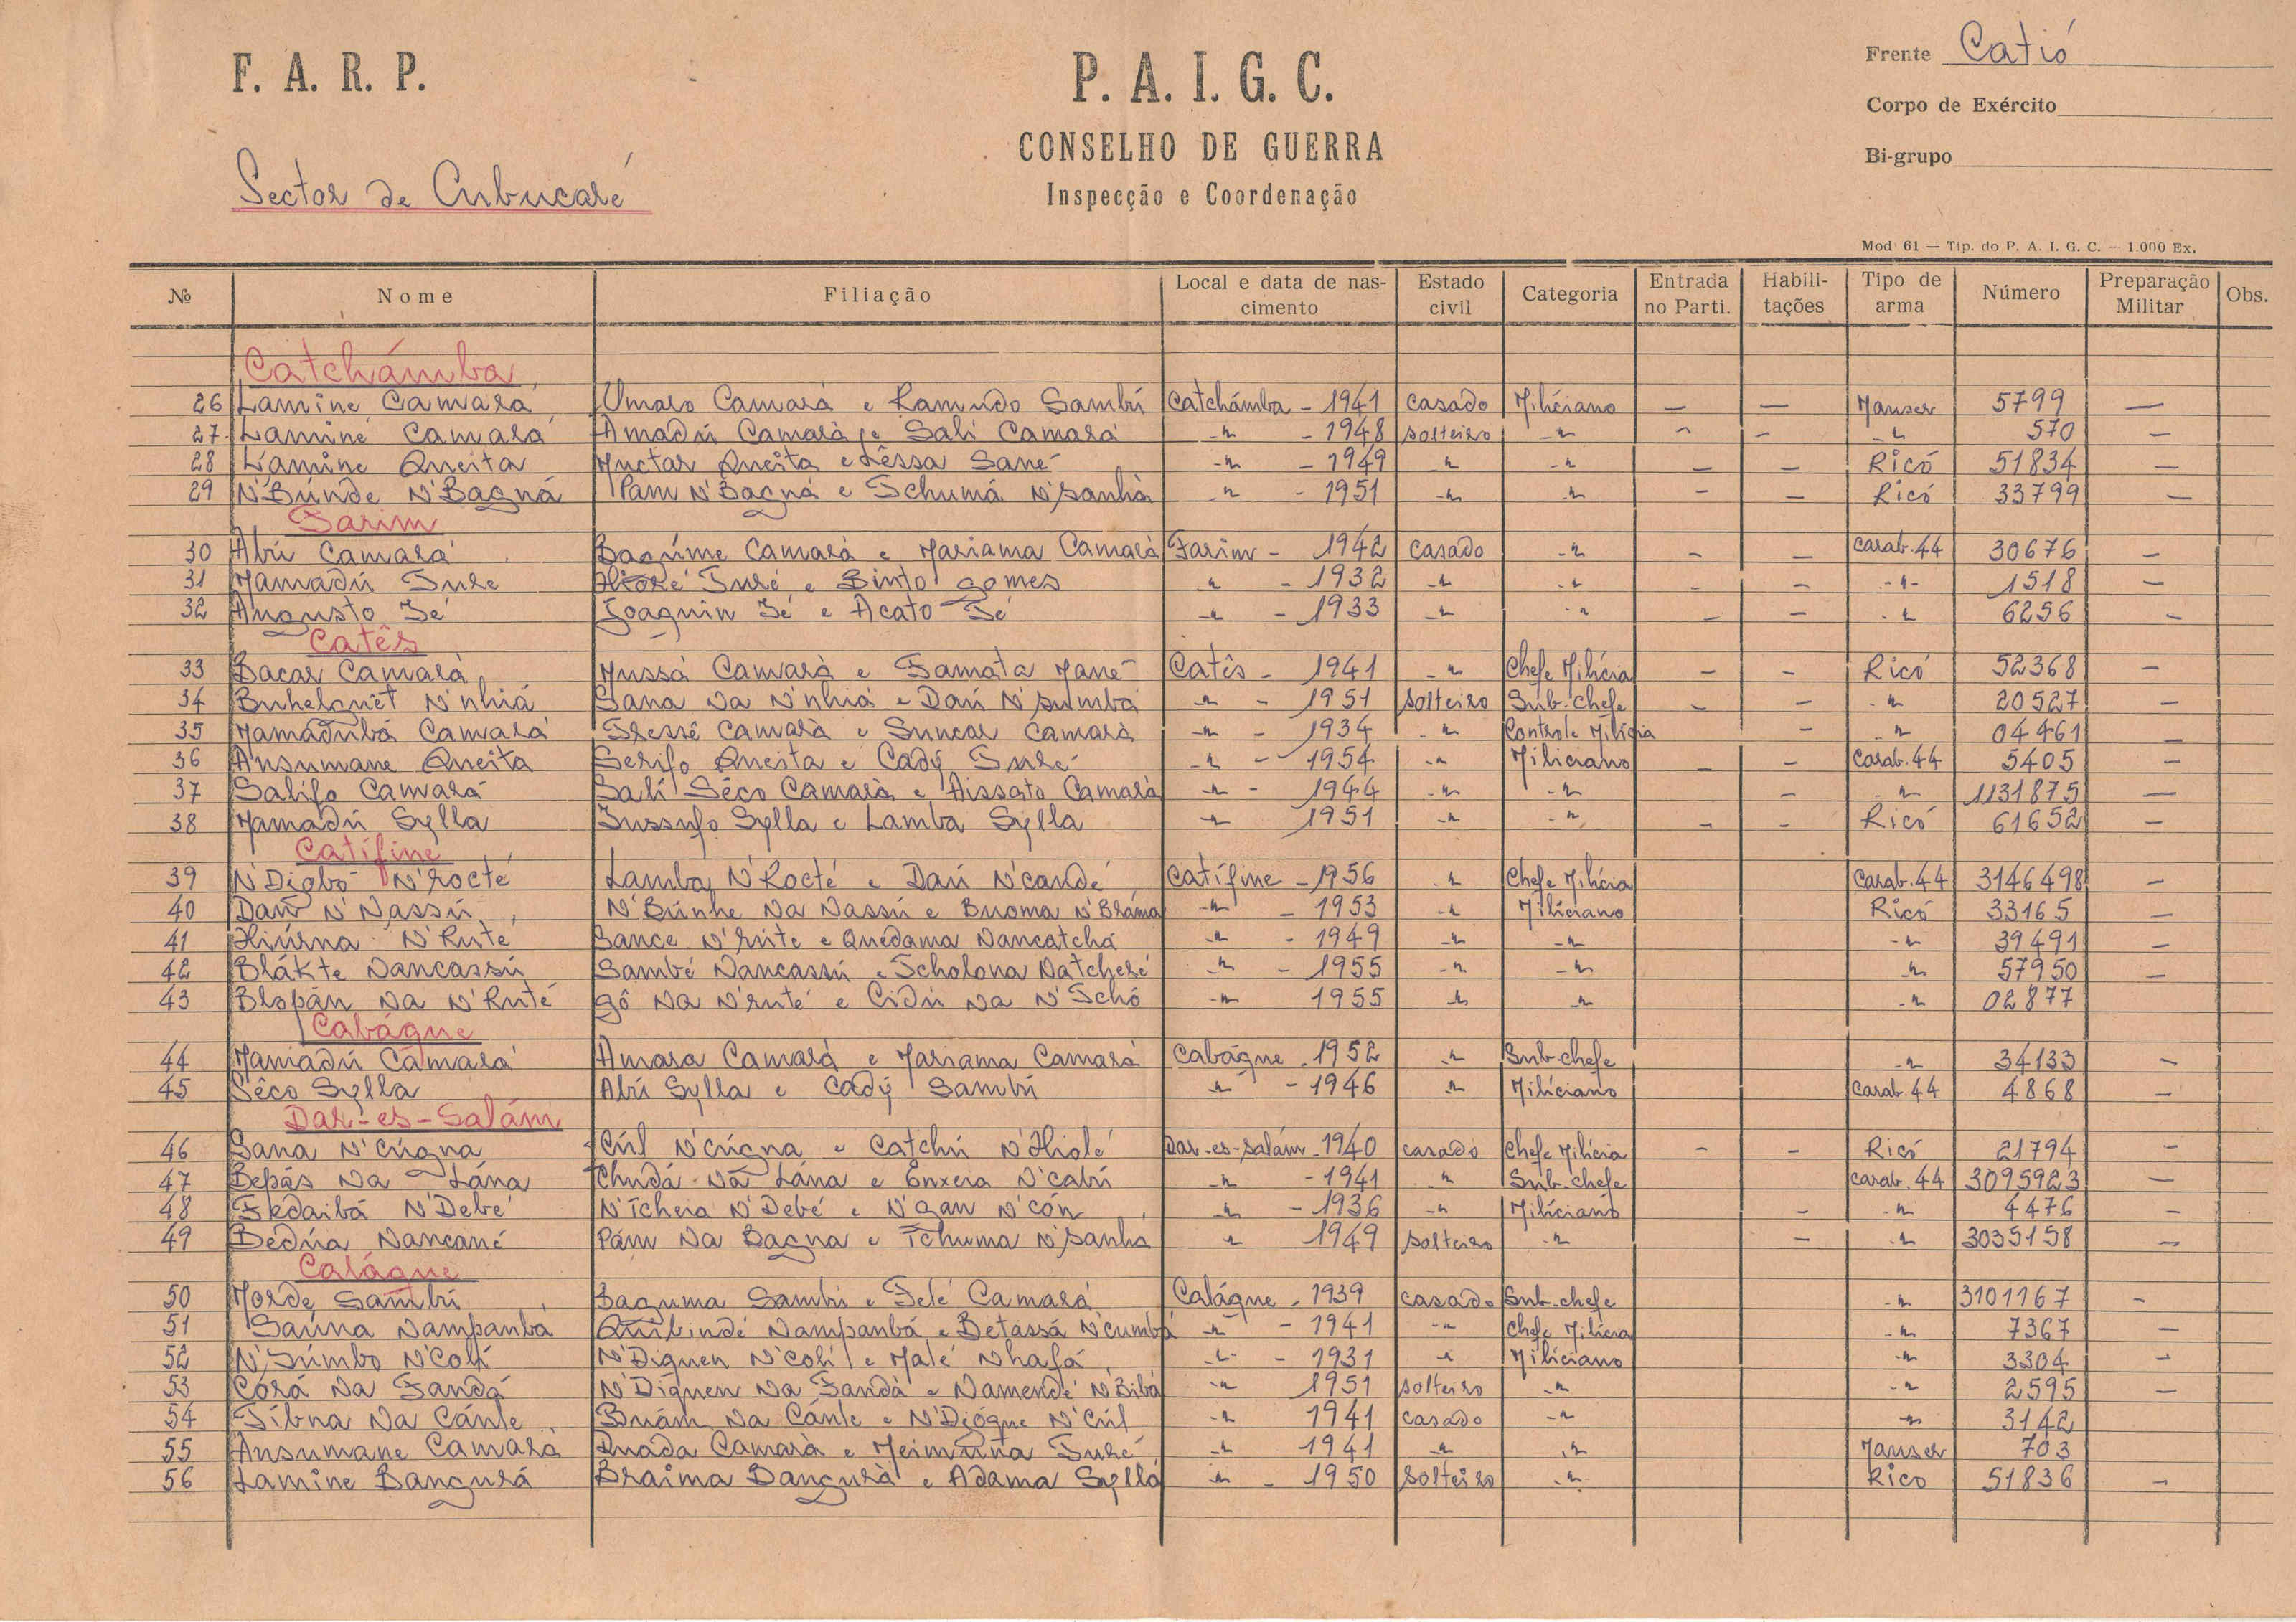 F. A. R. P.
P. A. I. G. C.
CONSELHO DE GUERRA
Inspecção e Coordenação
Frente Catió
Corpo de Exército
Bi-grupo
Sector de Cubucaré
Mod 61 — Tip. do P. A. I. G. C. — 1.000 Ex.
№ Nome Filiação Local e data de nascimento Estado civil Categoria Entrada no Parti. Habilitações Tipo de arma Número Preparação Militar Obs.
Catchámba
26 Lamine Camará Umaro Camará e Ramundo Sambú Catchámba - 1941 casado Miliciano — — Mauser 5799 —
27 Lamine Camará Amadú Camará e Sali Camará -"- - 1948 solteiro -"- — — -"- 570 —
28 Lamine Queita Muctar Queita e Lêssa Sané -"- - 1949 -"- -"- — — Ricó 51834 —
29 N'Búnde N'Bagná Pam N'Bagná e Tchumá N'sanhà -"- - 1951 -"- -"- — — Ricó 33799 —
Farim
30 Abú Camará Bagúme Camará e Mariama Camará Farim - 1942 casado -"- — — Carab. 44 30676 —
31 Mamadú Ture Turé e Binto gomes -"- - 1932 -"- -"- — — -"- 1518 —
32 Augusto Sé Joaquin Sé e Acato Sé -"- - 1933 -"- -"- — — -"- 6256 —
Catês
33 Bacar Camará Mussá Camará e Famata Mané Catês - 1941 -"- Chefe Milícia — — Ricó 52368 —
34 Buhelquêt N'nhiá Sana Na N'nhiá e Daú N'sumba -"- - 1951 solteiro Sub-chefe — — -"- 20527 —
35 Mamadúbá Camará Fressé Camará e Suncar Camará -"- - 1934 -"- Controle Milícia — -"- 04461 —
36 Ansumane Queita Serifo Queita e Cadý Turé -"- - 1954 -"- Miliciano — — Carab. 44 5405 —
37 Salifo Camará Sali Séco Camará e Aissato Camará -"- - 1944 -"- -"- — -"- 1131875 —
38 Mamadú Sylla Iussufo Sylla e Lamba Sylla -"- 1951 -"- -"- — — Ricó 61652 —
Catifine
39 N'Diobó N'rocté Lamba N'Rocté e Daú N'candé Catífine - 1956 -"- Chefe Milícia Carab. 44 3146498 —
40 Daú N'Nassú N'Búnhe Na Nassú e Buoma N'Brama -"- - 1953 -"- Miliciano Ricó 33165 —
41 N'Ruté Sance N'ruté e Quedama Nancatchá -"- - 1949 -"- -"- -"- 39491 —
42 Blákte Nancassú Sambé Nancassú e Tcholona Natcheré -"- - 1955 -"- -"- -"- 57950 —
43 Blopán Na N'Ruté Gô Na N'ruté e Cidú Na N'Tchó -"- 1955 -"- -"- -"- 02877
Cabágue
44 Mamadú Camará Amara Camará e Mariama Camará Cabágne - 1952 -"- Sub-chefe -"- 34133 —
45 Sêco Sylla Abú Sylla e Cadý Sambú -"- - 1946 -"- Miliciano Carab. 44 4868 —
Dar-es-Salám
46 Sana N'Cúgna Cúl N'cúgna e Catchú N'Hiolé Dar-es-salám - 1940 casado Chefe Milícia — — Ricó 21794 —
47 Bepás Na Lána Chudá Na Lána e Enxeia N'cabú -"- - 1941 -"- Sub-chefe Carab. 44 3095923 —
48 Fedaibá N'Debé N'Tcheia N'Debé e N'gan N'cón -"- - 1936 -"- Miliciano — -"- 4476 —
49 Bedúa Nancané Pám Na Bagna e Tchuma N'sanha -"- 1949 solteiro -"- — -"- 3035158 —
Calágue
50 Mordé Sambú Baguma Sambú e Felé Camará Calágue - 1939 casado Sub-chefe -"- 3101167 —
51 Saúna Nampanba Quibindé Nampanbá e Betassá N'cumba -"- - 1941 -"- Chefe Milícia -"- 7367 —
52 N'Súmbo N'Coli N'Diguen N'coli e Malé Nhafá -"- - 1931 -"- Miliciano -"- 3304 —
53 Córá Na Fandá N'Díguen Na Fandà e Namendé N'Bibá -"- 1951 solteiro -"- -"- 2595 —
54 Tíbna Na Cánle Buám Na Cánle e N'Diógue N'Cúl -"- 1941 casado -"- -"- 3142
55 Ansumane Camará Duada Camará e Meimuna Turé -"- 1941 -"- -"- Mauser 703
56 Lamine Bangurá Braima Bangurà e Adama Sylla -"- - 1950 solteiro -"- Rico 51836 —